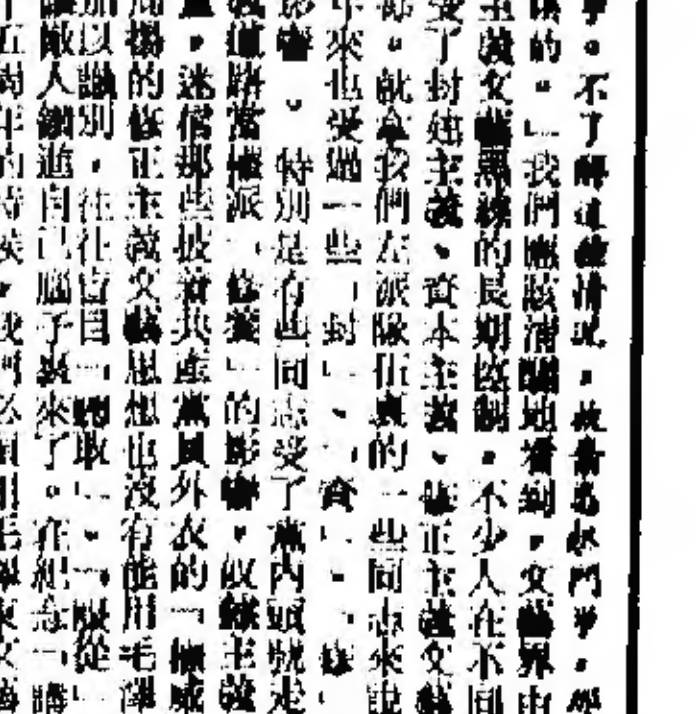 。不了解這種情況，
的。﹂我們應該清醒地看到，文藝界由
主義文藝黑線的長期控制，不少人在不同
受了封建主義、資本主義、修正主義文藝
。就拿我們左派隊伍裏的一些同志來說
年來也受過一些﹁封﹂、﹁資﹂、﹁修
影響。特別是有些同志受了黨內頭號走
義道路當權派﹁修養﹂的影響，奴隸主義
，迷信那些披着共產黨員外衣的﹁權威
周揚的修正主義文藝思想也沒有能用毛澤
加以識別，往往盲目﹁聽取﹂、﹁服從
敵人鑽進自己腦子裏來了。在紀念﹁講
五周年的時候，我們必須用毛澤東文